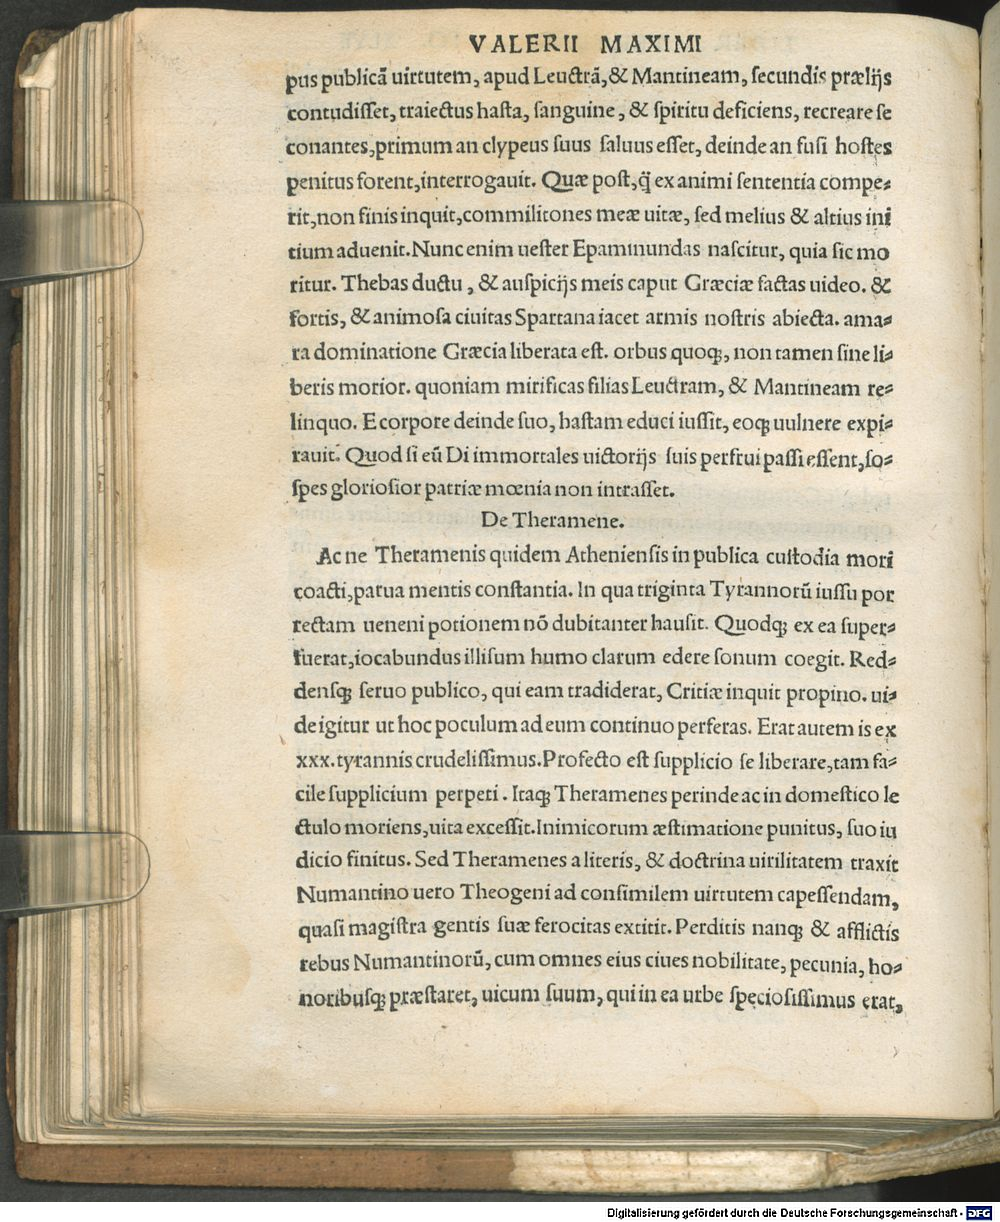 VALERII MAXIMI
pus publicã uirtutem, apud Leuctrã, & Mantineam, ſecundis prælijs
contudiſſet, traiectus haſta, ſanguine, & ſpiritu deficiens, recreare ſe
conantes, primum an clypeus ſuus ſaluus eſſet, deinde an fuſi hoſtes
penitus forent, interrogauit. Quæ poſt, q̃ ex animi ſententia compe⸗
rit, non finis inquit, commilitones meæ uitæ, ſed melius & altius ini
tium aduenit. Nunc enim ueſter Epaminundas naſcitur, quia ſic mo
ritur. Thebas ductu, & auſpicijs meis caput Græciæ factas uideo. &
fortis, & animoſa ciuitas Spartana iacet armis noſtris abiecta. ama⸗
ra dominatione Græcia liberata eſt. orbus quoqꝫ, non tamen ſine li⸗
beris morior. quoniam mirificas filias Leuctram, & Mantineam re⸗
linquo. E corpore deinde ſuo, haſtam educi iuſſit, eoqꝫ uulnere expi⸗
rauit. Quod ſi eũ Di immortales uictorijs ſuis perfrui paſſi eſſent, ſo⸗
ſpes glorioſior patriæ mœnia non intraſſet.
De Theramene.
Ac ne Theramenis quidem Athenienſis in publica cuſtodia mori
coacti, parua mentis conſtantia. In qua triginta Tyrannorũ iuſſu por
rectam ueneni potionem nõ dubitanter hauſit. Quodqꝫ ex ea ſuper⸗
fuerat, iocabundus illiſum humo clarum edere ſonum coegit. Red⸗
denſqꝫ ſeruo publico, qui eam tradiderat, Critiæ inquit propino. ui⸗
de igitur ut hoc poculum ad eum continuo perferas. Erat autem is ex
xxx. tyrannis crudeliſſimus. Profecto eſt ſupplicio ſe liberare, tam fa⸗
cile ſupplicium perpeti. Itaqꝫ Theramenes perinde ac in domeſtico le
ctulo moriens, uita exceſſit. Inimicorum æſtimatione punitus, ſuo iu
dicio finitus. Sed Theramenes a literis, & doctrina uirilitatem traxit
Numantino uero Theogeni ad conſimilem uirtutem capeſſendam,
quaſi magiſtra gentis ſuæ ferocitas extitit. Perditis nanqꝫ & afflictis
rebus Numantinorũ, cum omnes eius ciues nobilitate, pecunia, ho⸗
noribuſqꝫ præſtaret, uicum ſuum, qui in ea urbe ſpecioſiſſimus erat,
Digitalisierung gefördert durch die Deutsche Forschungsgemeinschaft - DFG